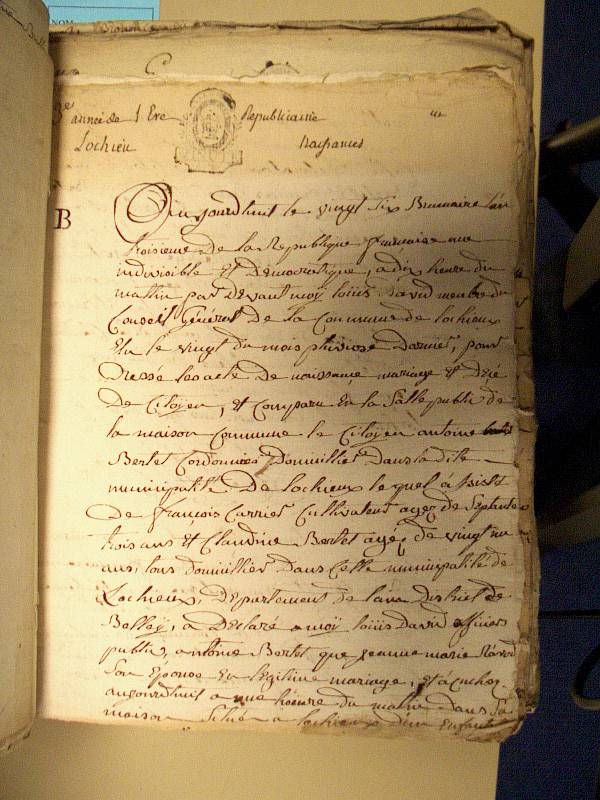 NOM
3e année de l Ere Republicainne
Lochieu Naissances
B
Au jourdhuit le vingt six Brumaire l'an
troisieme de la Republique francaise une
indivisible Et Democratique, a dix heure du
matin par devant moÿ loüis david membre du
Conseil General de la Commune de lochieux
Elu le vingt du mois pluviose dernier, pour
Dressé les acte de naissance mariage et décé
de Citoÿen, et Comparu En la Salle public de
la maison Commune le Citoÿen antoine
Bertet Cordonnier Domicillier Dans la dite
municipalité De lochieux lequel assisté
De françois Carrier Cultivateur agez de Septante
trois ans et Claudine Bertet agez de vingt
ans, tous domicillier dans Cette municipalité de
Lochieux, Departement de lain district de
Belleÿ, a Déclaré a moÿ loüis David officier
public, antoine Bertet que jeanne marie
Son Epouse En legitime mariage, est acuchez
aujourdhuit a une heure du matin dans Sa
maison Située a lochieux d'un Enfant